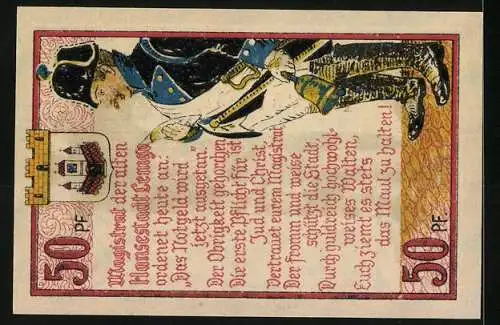 Magistrat der alten
Hansestadt Lemgo
ordenet heute an:
"Das Notgeld wird
jetzt ausgetan."
Der Obrigkeit gehorchen
Die erste Pflicht für ist
Jud und Christ.
Vertrauet eurem Magistrat,
Der fromm und weise
schützt die Stadt,
Durch gnädreich hochwohl-
weises Walten,
Euch ziemt es stets
das Maul zu halten!
50 PF
50 PF